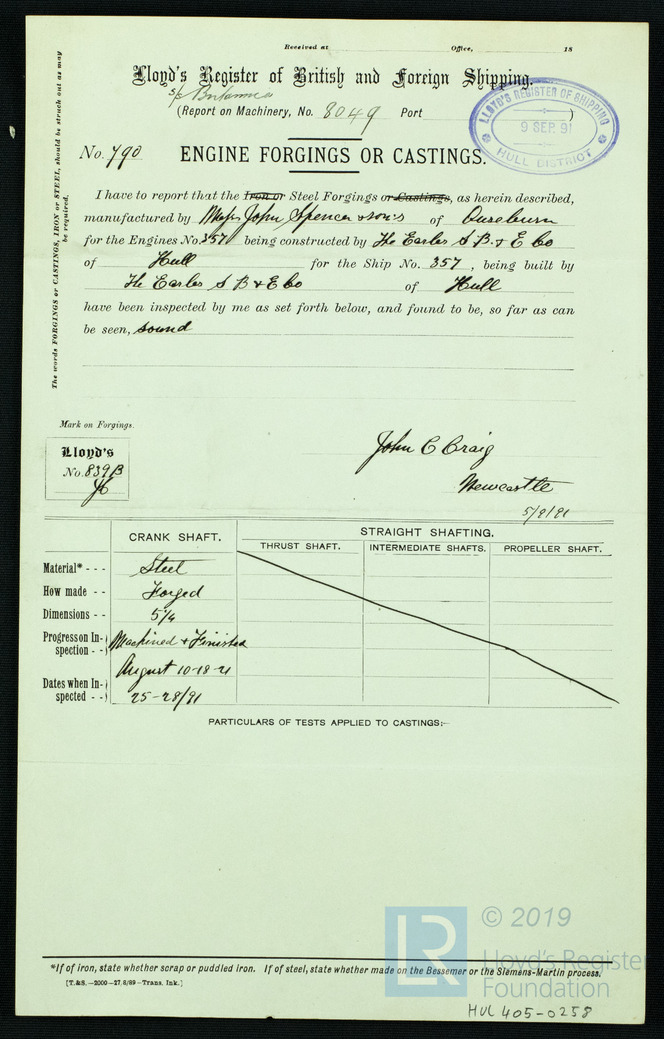 Received at Office, 18
Lloyd's Register of British and Foreign Shipping.
s/s Britannia
(Report on Machinery, No. 8049 Port )
LLOYD'S REGISTER OF SHIPPING
9 SEP. 91
HULL DISTRICT
No. 790 ENGINE FORGINGS OR CASTINGS.
The words FORGINGS or CASTINGS, IRON or STEEL, should be struck out as may
be required.
I have to report that the Iron or Steel Forgings or Castings, as herein described,
manufactured by Messrs John Spencer & Sons of Ouseburn
for the Engines No. 357 being constructed by The Earles S. B. & E Co
of Hull for the Ship No. 357, being built by
The Earles S B & E Co of Hull
have been inspected by me as set forth below, and found to be, so far as can
be seen, sound
Mark on Forgings.
Lloyd's
No. 839B
John C Craig
Newcastle
5/9/91
CRANK SHAFT. STRAIGHT SHAFTING.
THRUST SHAFT. INTERMEDIATE SHAFTS. PROPELLER SHAFT.
Material* - - - Steel
How made - - Forged
Dimensions - - 5 1/4
Progress on In-
spection - - Machined & Finished
August 10-18-21
Dates when In-
spected - - 25-28/91
PARTICULARS OF TESTS APPLIED TO CASTINGS:—
LR © 2019
Lloyd's Register
Foundation
*If of iron, state whether scrap or puddled iron. If of steel, state whether made on the Bessemer or the Siemens-Martin process.
[T.&S.—2000—27/8/89—Trans. Ink.]
HUL 405-0258